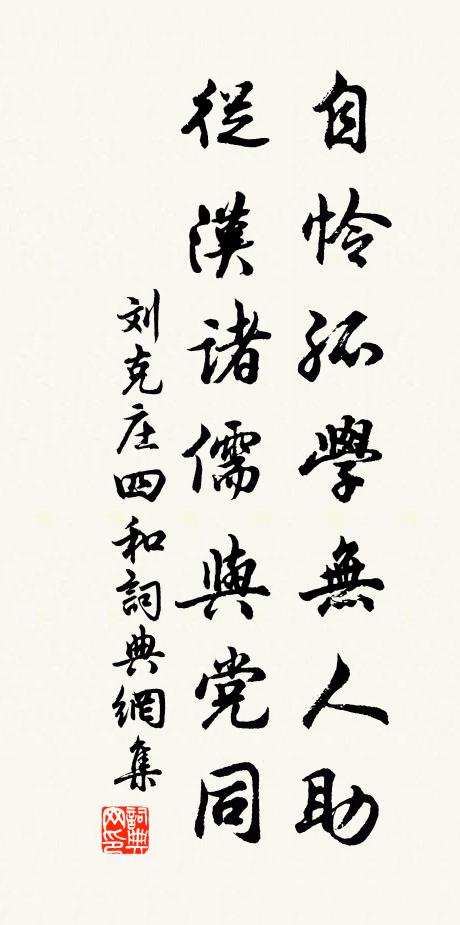 自怜孤學無人助
從漢諸儒與党同
刘克庄四和詞典網集
詞典
网印